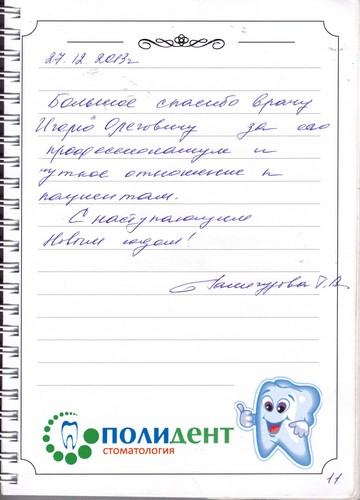 27.12.2013г
Большое спасибо врачу
Игорю Олеговичу за его
профессионализм и
чуткое отношение к
пациентам.
С наступающим
Новым годом!
ПОЛИДЕНТ
СТОМАТОЛОГИЯ
11